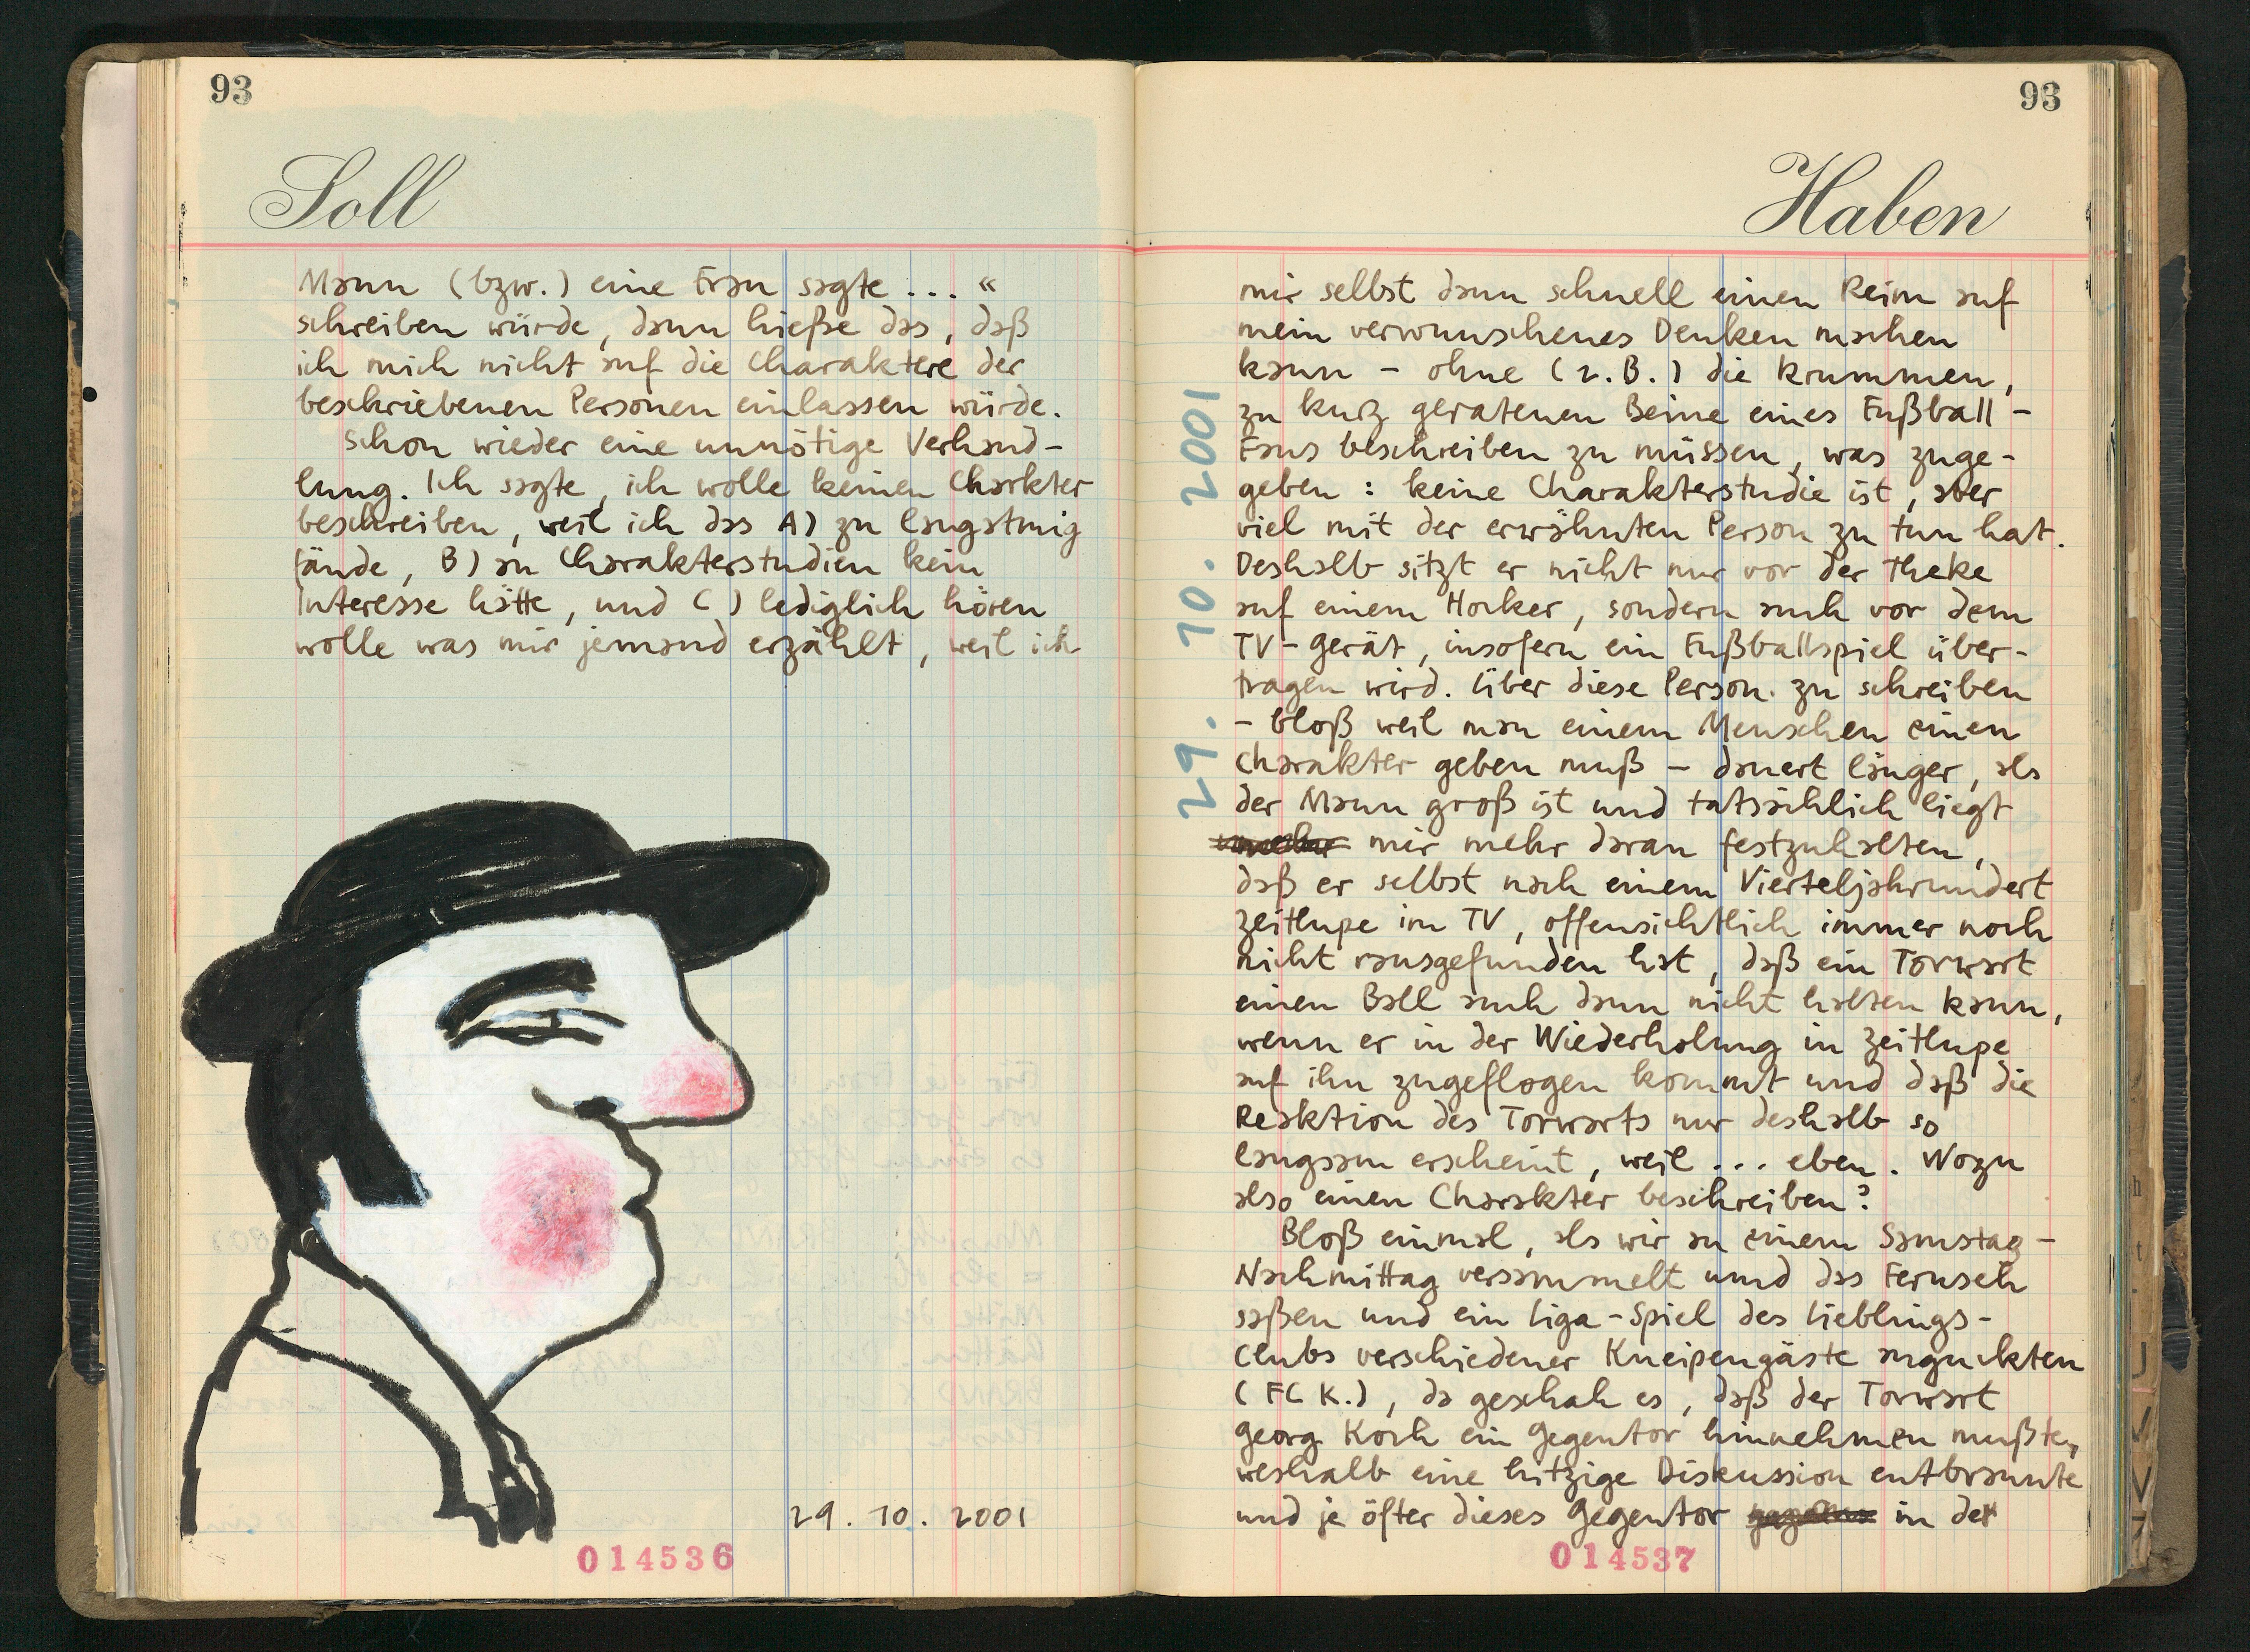 93
Soll
Mann (bzw.) eine Frau sagte ... «
schreiben würde, dann hieße das, daß
ich mich nicht auf die Charaktere der
beschriebenen Personen einlassen würde.
Schon wieder eine unnötige Verhand-
lung. Ich sagte, ich wolle keinen Charkter
beschreiben, weil ich das A) zu langatmig
fände, B) an Charakterstudien kein
Interesse hätte, und C) lediglich hören
wolle was mir jemand erzählt, weil ich
29. 10. 2001
014536
93
Haben
29. 10. 2001
mir selbst dann schnell einen Reim auf
mein verwunschenes Denken machen
kann - ohne (z.B.) die krummen,
zu kurz geratenen Beine eines Fußball-
Fans beschreiben zu müssen, was zuge-
geben: keine Charakterstudie ist, aber
viel mit der erwähnten Person zu tun hat.
Deshalb sitzt er nicht nur vor der Theke
auf einem Hocker, sondern auch vor dem
TV-Gerät, insofern ein Fußballspiel über-
tragen wird. Über diese Person zu schreiben
- bloß weil man einem Menschen einen
Charakter geben muß - dauert länger, als
der Mann groß ist und tatsächlich liegt
mir mehr daran festzuhalten,
daß er selbst nach einem Vierteljahrundert
Zeitlupe im TV, offensichtlich immer noch
nicht rausgefunden hat, daß ein Torwart
einen Ball auch dann nicht halten kann,
wenn er in der Wiederholung in Zeitlupe
auf ihn zugeflogen kommt und daß die
Reaktion des Torwarts nur deshalb so
langsam erscheint, weil ... eben. Wozu
also einen Charakter beschreiben?
Bloß einmal, als wir an einem Samstag-
Nachmittag versammelt umd das Fernseh
saßen und ein Liga-Spiel des Lieblings-
Clubs verschiedener Kneipengäste anguckten
(FC K.), da geschah es, daß der Torwart
Georg Koch ein Gegentor hinnehmen mußte,
weshalb eine hitzige Diskussion entbrannte
und je öfter dieses Gegentor in der
014537